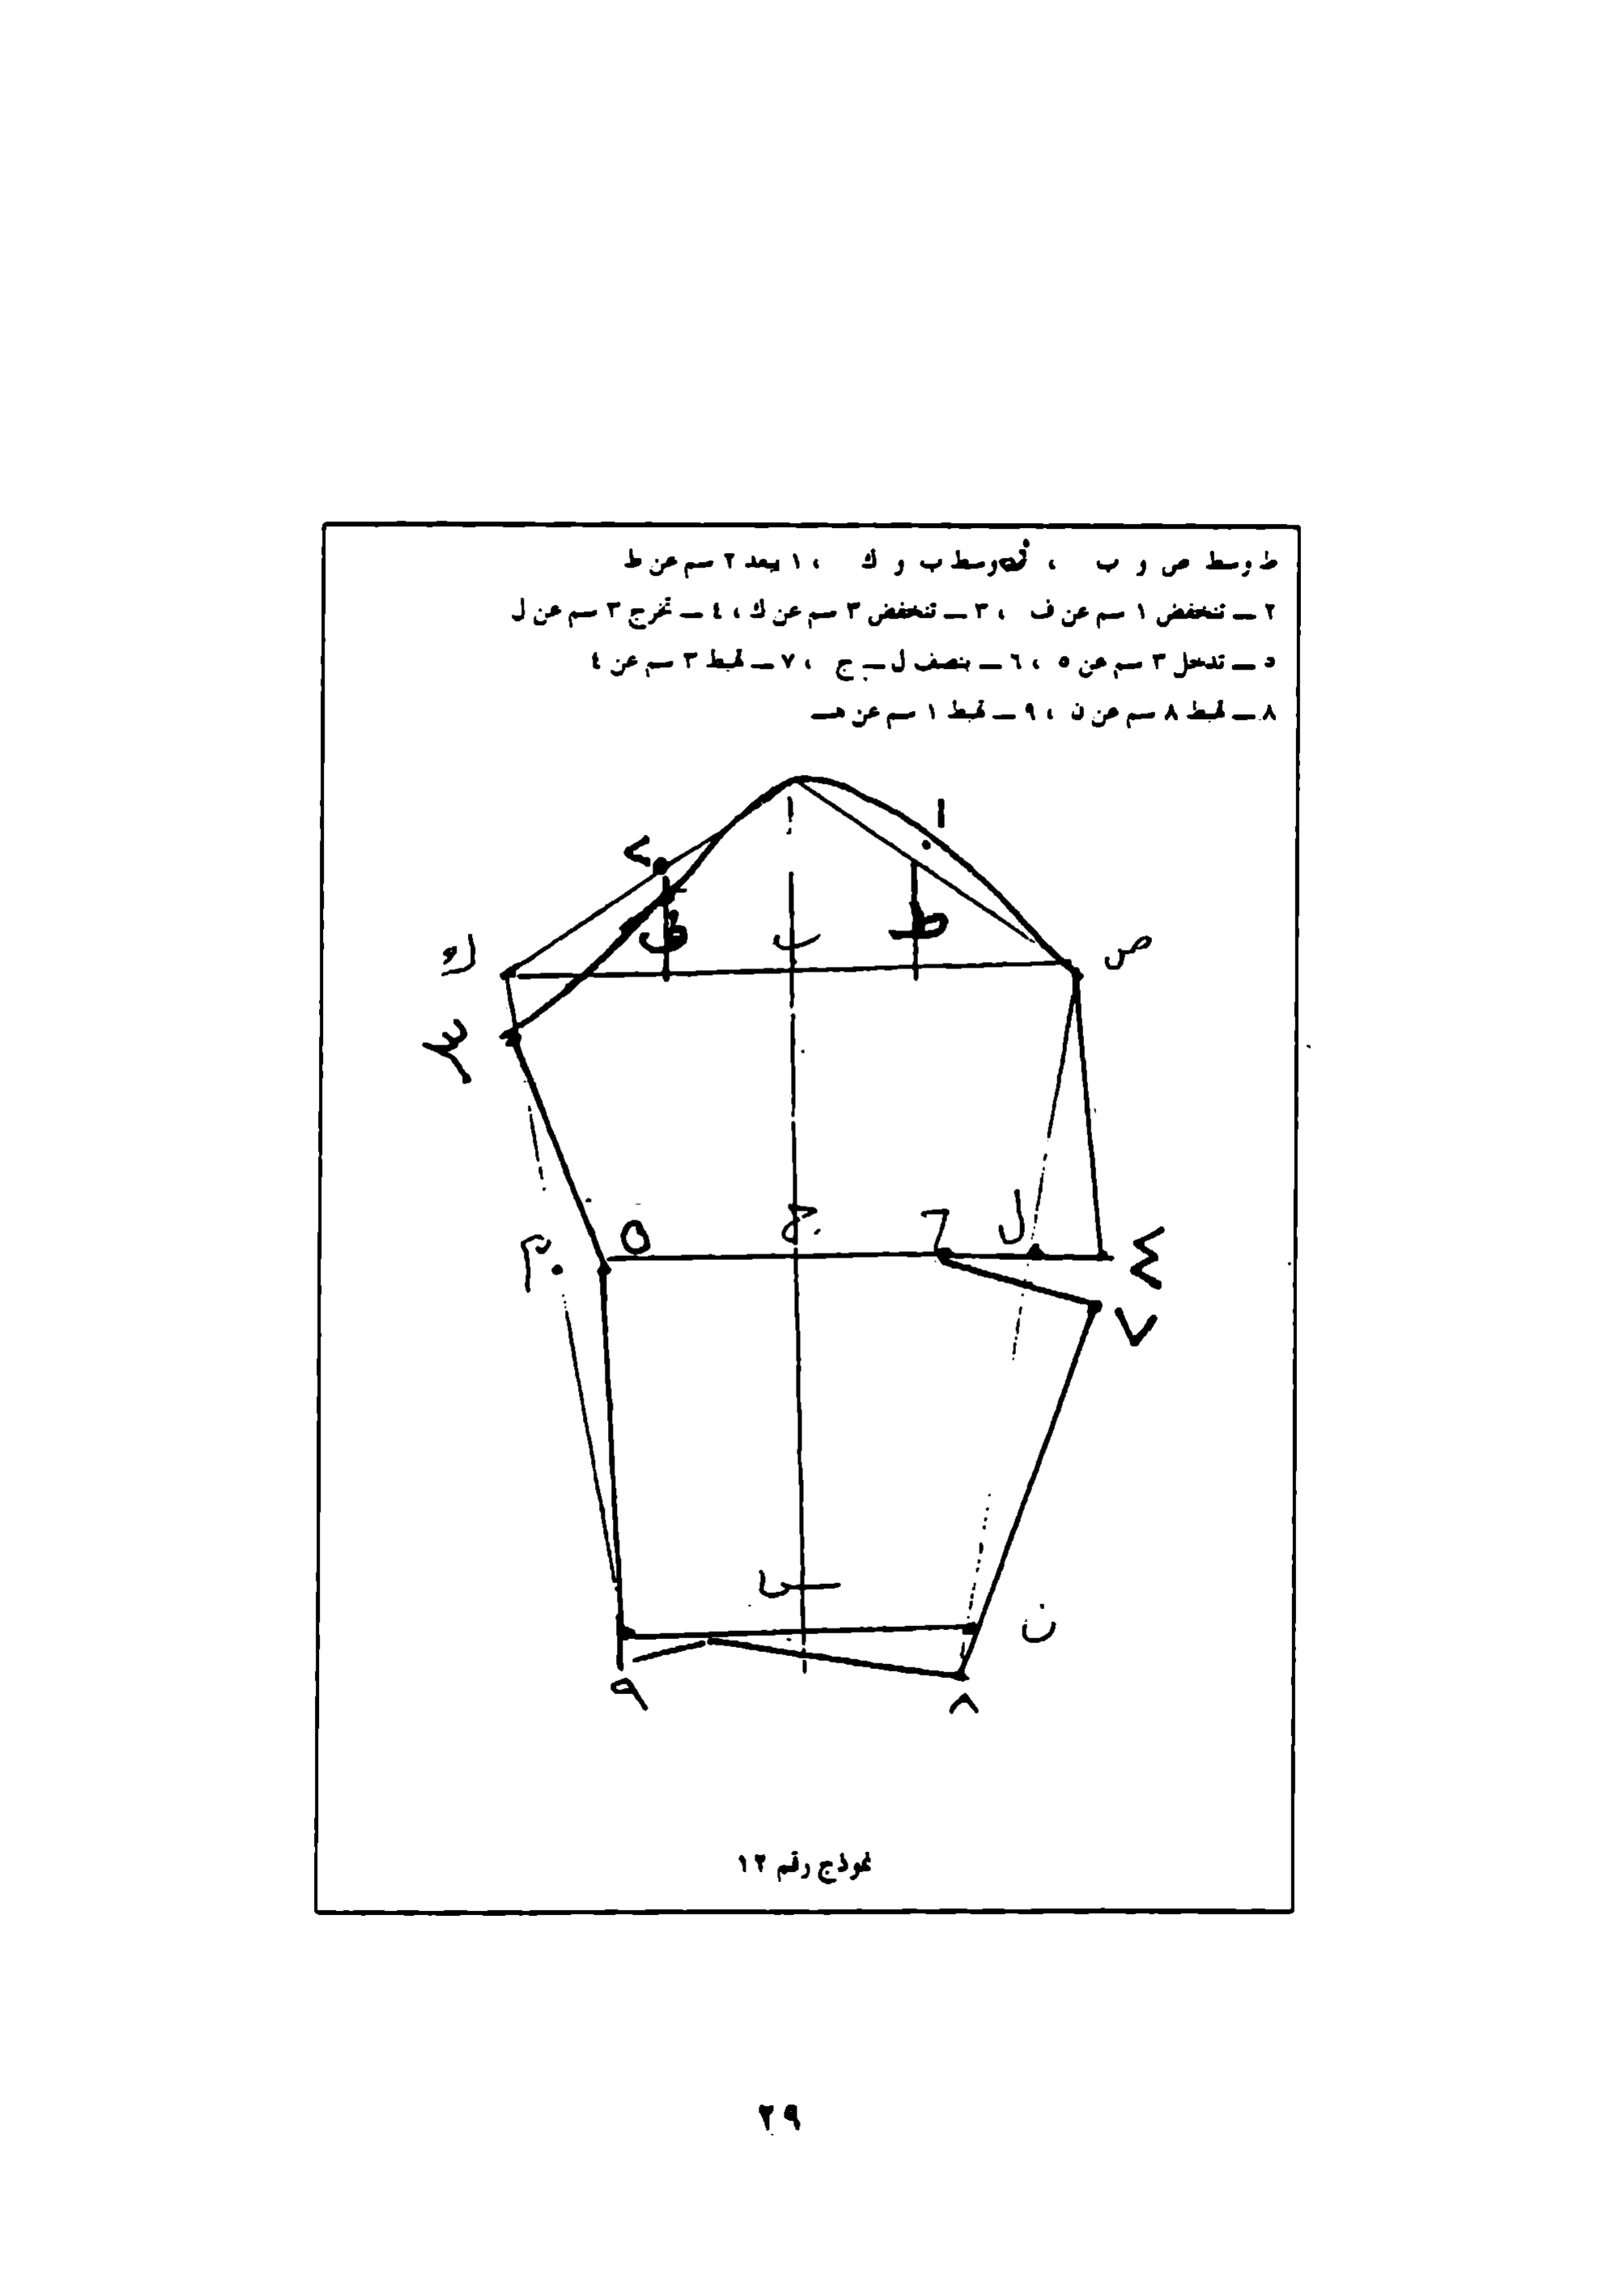 ط وسط ص و ب ، ف وسط ب و ك ، ١ يبعد ٢ سم عن ط
٢ ــ تنخفض ١ سم عن ف ، ٣ ــ تنخفض ٣ سم عن ك ، ٤ ــ تخرج ٣ سم عن ل
٥ ــ تدخل ٣ سم عن ٥ ، ٦ ــ بنصف ل ــ ج ، ٧ ــ تهبط ٣ سم عن ٤
٨ ــ تهبط ٨ سم عن ن ، ٩ ــ تهبط ١ سم عن هـ
ا
١
٢
ف
ب
ط
ك
ص
٣
م
٥
ج
٦
ل
٤
٧
ن
٩
٨
نموذج رقم ١٢
٢٩